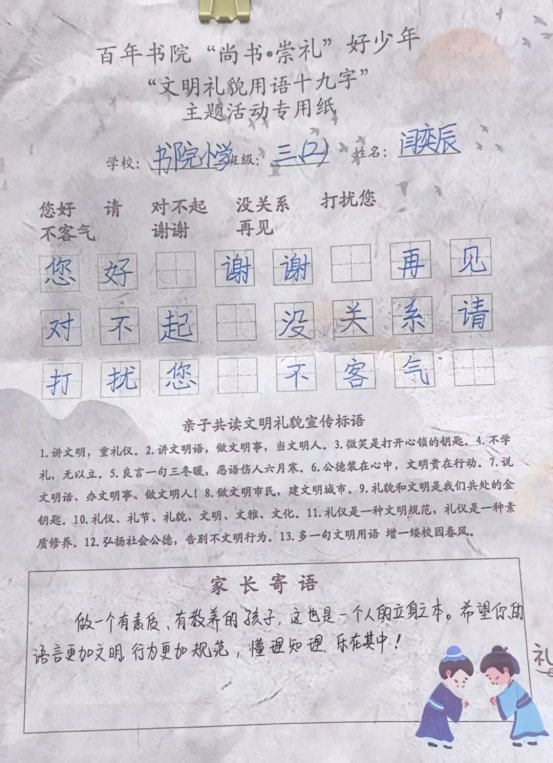 百年书院“尚书·崇礼”好少年
“文明礼貌用语十九字”
主题活动专用纸
学校：书院小学 班级：三(2) 姓名：闫奕辰
您好 请 对不起 没关系 打扰您
不客气 谢谢 再见
您好 谢谢 再见
对不起 没关系请
打扰您 不客气
亲子共读文明礼貌宣传标语
1.讲文明，重礼仪。2.讲文明语，做文明事，当文明人。3.微笑是打开心锁的钥匙。4.不学
礼，无以立。5.良言一句三冬暖，恶语伤人六月寒。6.公德装在心中，文明贵在行动。7.说
文明话、办文明事、做文明人！8.做文明市民，建文明城市。9.礼貌和文明是我们共处的金
钥匙。10.礼仪、礼节、礼貌、文明、文雅、文化。11.礼仪是一种文明规范，礼仪是一种素
质修养。12.弘扬社会公德，告别不文明行为。13.多一句文明用语 增一缕校园春风。
家长寄语
做一个有素质，有教养的孩子，这也是一个人的立身立本。希望你的
语言更加文明，行为更加规范，懂理知理，乐在其中！
礼